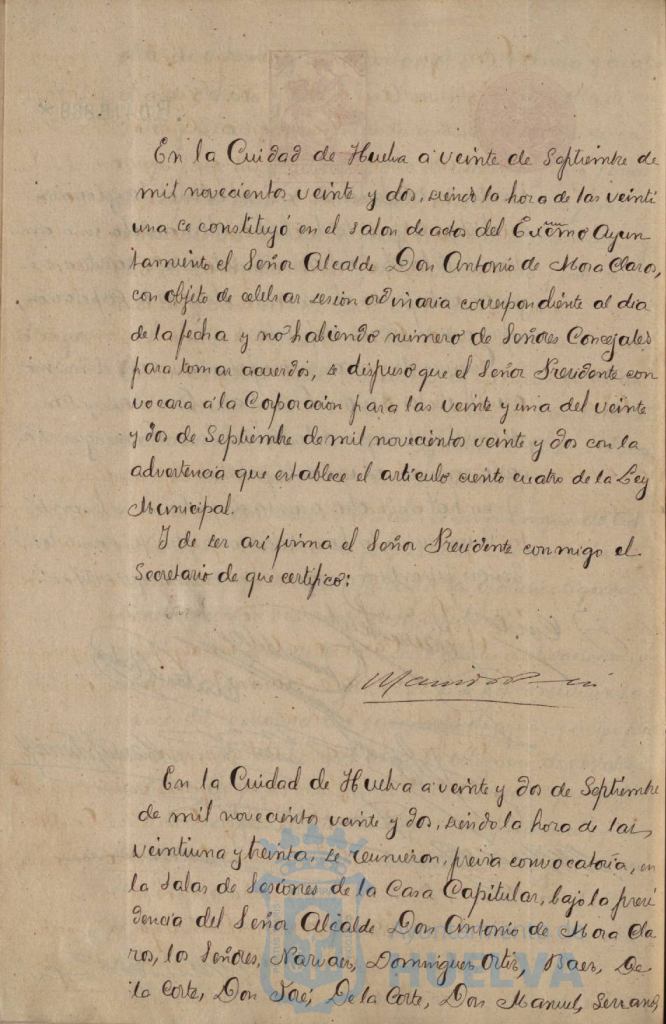 En la Cuidad de Huelva a veinte de Septiembre de
mil novecientos veinte y dos, siendo la hora de las veinti
una se constituyó en el salon de actos del Exmo Ayun
tamiento el Señor Alcalde Don Antonio de Mora Claros,
con objeto de celebrar sesión ordinaria correspondiente al dia
de la fecha y no habiendo numero de Señores Concejales
para tomar acuerdos, se dispuso que el Señor Presidente con
vocara á la Corporación para las veinte y una del veinte
y dos de Septiembre de mil novecientos veinte y dos con la
advertencia que establece el artículo ciento cuatro de la Ley
Municipal.
Y de ser asi firma el Señor Presidente conmigo el
Secretario de que certifico:
En la Cuidad de Huelva a veinte y dos de Septiembre
de mil novecientos veinte y dos, siendo la hora de las
veintiuna y treinta, se reunieron, previa convocatoria, en
la Salas de Sesiones de la Casa Capitular, bajo la presi
dencia del Señor Alcalde Don Antonio de Mora Cla
ros, los Señores, Narvaes, Dominguez Ortiz, Baes, De
la Corte, Don José, De la Corte, Don Manuel, Serrano,
HUELVA